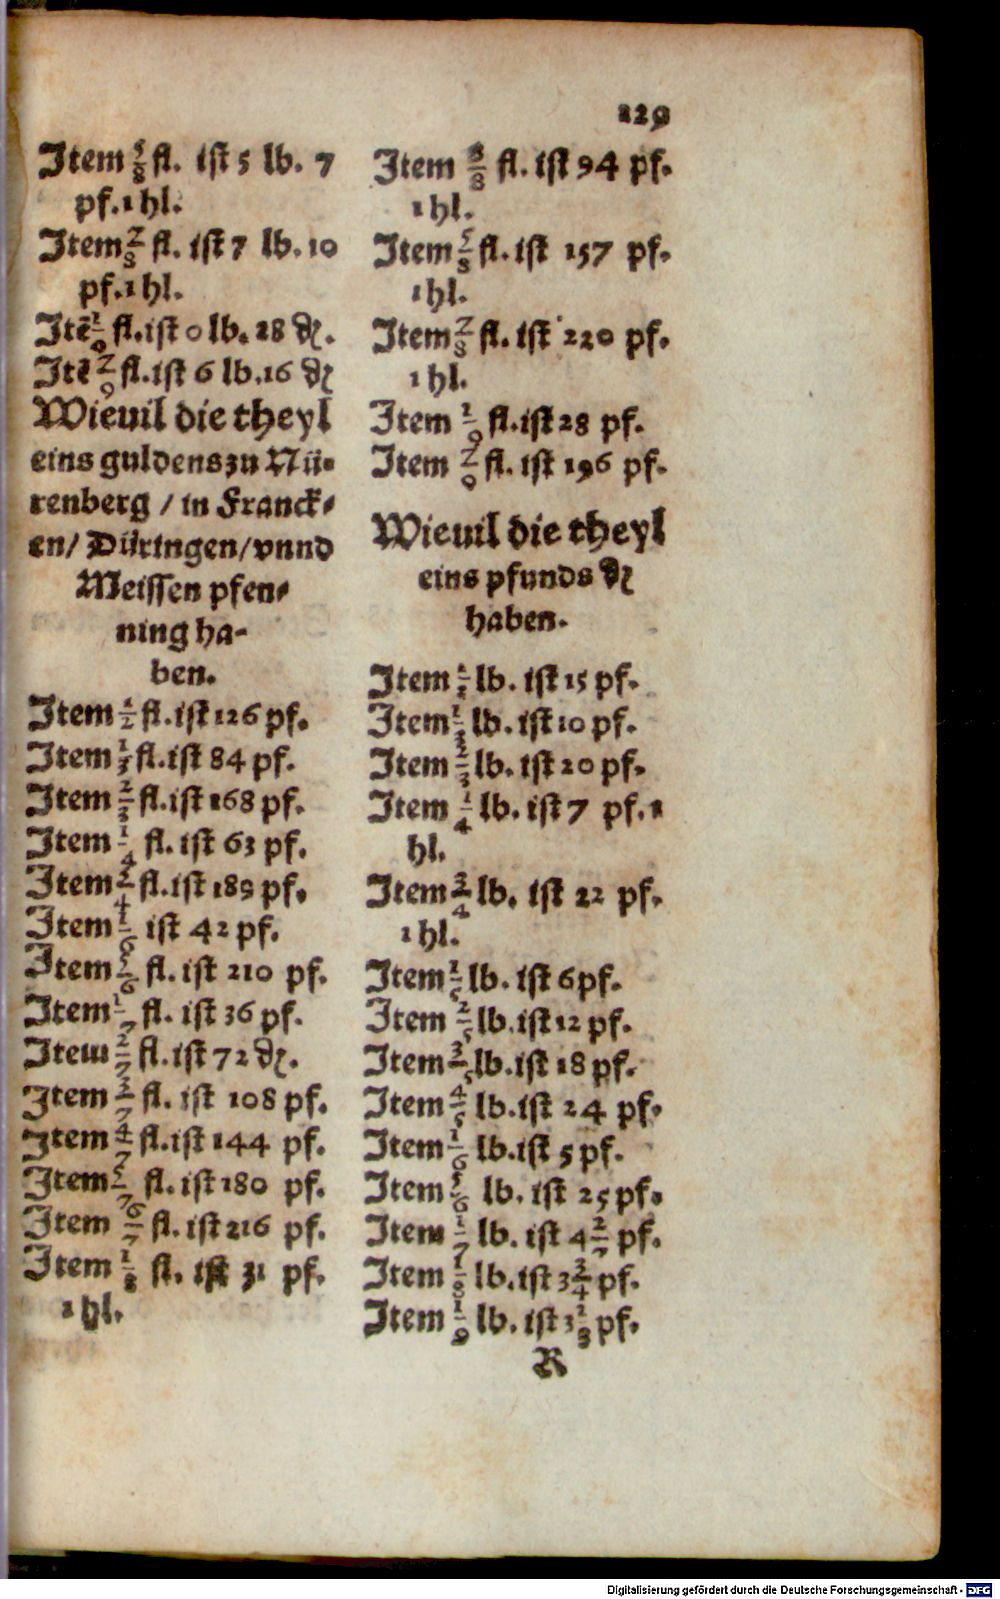 129
Item 5/8 fl. ist 5 lb. 7
pf. 1 hl.
Item 7/8 fl. ist 7 lb. 10
pf. 1 hl.
Itē 1/9 fl. ist 0 lb. 28 ₰.
Itē 7/9 fl. ist 6 lb. 16 ₰
Wieuil die theyl
eins guldens zu Nü-
renberg / in Franck-
en / Düringen / vnnd
Meissen pfen-
ning ha-
ben.
Item 1/2 fl. ist 126 pf.
Item 1/3 fl. ist 84 pf.
Item 2/3 fl. ist 168 pf.
Item 1/4 fl. ist 63 pf.
Item 3/4 fl. ist 189 pf.
Item 1/6 ist 42 pf.
Item 5/6 fl. ist 210 pf.
Item 1/7 fl. ist 36 pf.
Item 2/7 fl. ist 72 ₰.
Item 3/7 fl. ist 108 pf.
Item 4/7 fl. ist 144 pf.
Item 5/7 fl. ist 180 pf.
Item 6/7 fl. ist 216 pf.
Item 1/8 fl. ist 31 pf.
1 hl.
Item 3/8 fl. ist 94 pf.
1 hl.
Item 5/8 fl. ist 157 pf.
1 hl.
Item 7/8 fl. ist 220 pf.
1 hl.
Item 1/9 fl. ist 28 pf.
Item 7/9 fl. ist 196 pf.
Wieuil die theyl
eins pfunds ₰
haben.
Item 1/2 lb. ist 15 pf.
Item 1/3 lb. ist 10 pf.
Item 2/3 lb. ist 20 pf.
Item 1/4 lb. ist 7 pf. 1
hl.
Item 3/4 lb. ist 22 pf.
1 hl.
Item 1/5 lb. ist 6 pf.
Item 2/5 lb. ist 12 pf.
Item 3/5 lb. ist 18 pf.
Item 4/5 lb. ist 24 pf.
Item 1/6 lb. ist 5 pf.
Item 5/6 lb. ist 25 pf.
Item 1/7 lb. ist 4 2/7 pf.
Item 1/8 lb. ist 3 3/4 pf.
Item 1/9 lb. ist 3 1/3 pf.
R
Digitalisierung gefördert durch die Deutsche Forschungsgemeinschaft - DFG